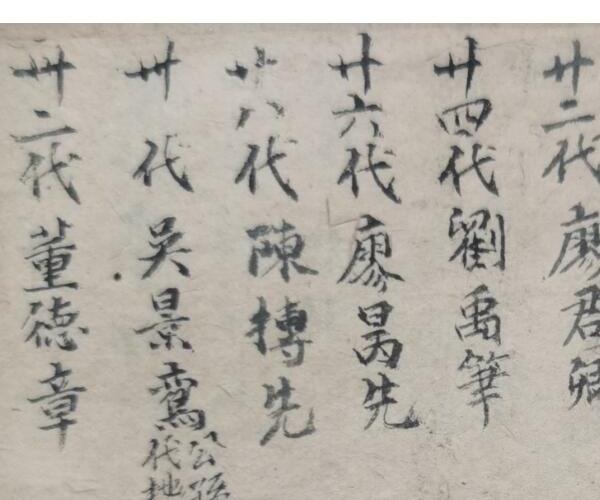 廿二代廖君卿
廿四代劉禹筆
廿六代廖昺先
廿八代陳摶先
卅代吳景鸞
公孫
代地
卅二代董德章